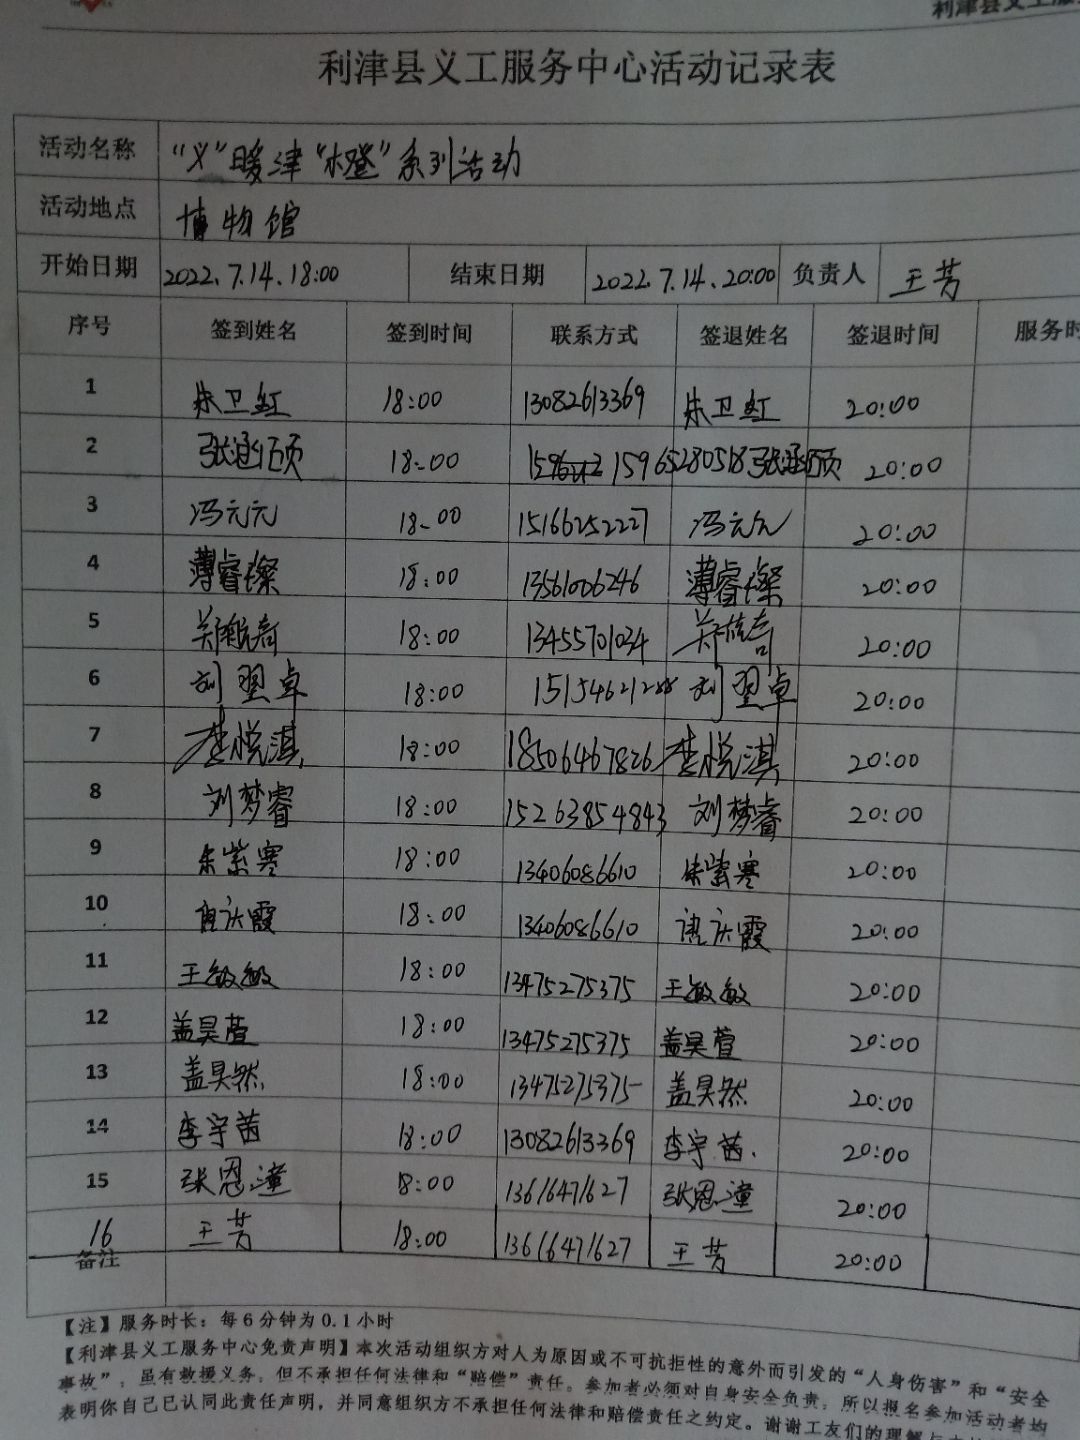 利津县义工服
利津县义工服务中心活动记录表
活动名称 “义”暖津“水橙”系列活动
活动地点 博物馆
开始日期 2022.7.14.18:00 结束日期 2022.7.14.20:00 负责人 王芳
序号 签到姓名 签到时间 联系方式 签退姓名 签退时间 服务时
1 朱卫红 18:00 13082613369 朱卫红 20:00
2 张涵硕 18:00 15965280518 张涵硕 20:00
3 冯元元 18:00 15166252227 冯元元 20:00
4 薄睿璨 18:00 13561006246 薄睿璨 20:00
5 郑皓奇 18:00 13455701034 郑皓奇 20:00
6 刘翌卓 18:00 15154621288 刘翌卓 20:00
7 李悦淇 18:00 18506467826 李悦淇 20:00
8 刘梦睿 18:00 15263854843 刘梦睿 20:00
9 朱紫寒 18:00 13406086610 朱紫寒 20:00
10 唐庆霞 18:00 13406086610 唐庆霞 20:00
11 王敏敏 18:00 13475275375 王敏敏 20:00
12 盖昊萱 18:00 13475275375 盖昊萱 20:00
13 盖昊然 18:00 13475275375 盖昊然 20:00
14 李宇茜 18:00 13082613369 李宇茜 20:00
15 张恩潼 18:00 13616471627 张恩潼 20:00
16 王芳 18:00 13616471627 王芳 20:00
备注
【注】服务时长：每6分钟为0.1小时
【利津县义工服务中心免责声明】本次活动组织方对人为原因或不可抗拒性的意外而引发的“人身伤害”和“安全
事故”，虽有救援义务，但不承担任何法律和“赔偿”责任。参加者必须对自身安全负责，所以报名参加活动者均
表明你自己已认同此责任声明，并同意组织方不承担任何法律和赔偿责任之约定。谢谢工友们的理解与